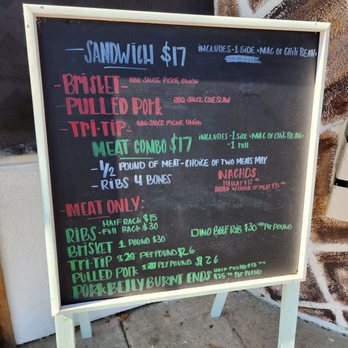 -SANDWICH $17 INCLUDES-1 SIDE-MAC OR CHILI BEAN
-BRISKET- BBQ SAUCE PICKLE ONION
-PULLED PORK BBQ SAUCE COLE SLAW
-TRI-TIP- BBQ SAUCE PICKLE ONION
MEAT COMBO $17 INCLUDES-1 SIDE-MAC OR CHILI BEAN
-1 roll
-1/2 POUND OF MEAT-CHOICE OF TWO MEATS MAY
-RIBS 4 BONES
NACHOS
-MEAT ONLY:
RIBS- HALF RACK $15
FULL RACK $30
DINO BEEF RIB $30 PER POUND
BRISKET 1 POUND $30
TRI-TIP PER POUND $26
PULLED PORK PER POUND $26
PORK BELLY BURNT ENDS HALF POUND
PER POUND